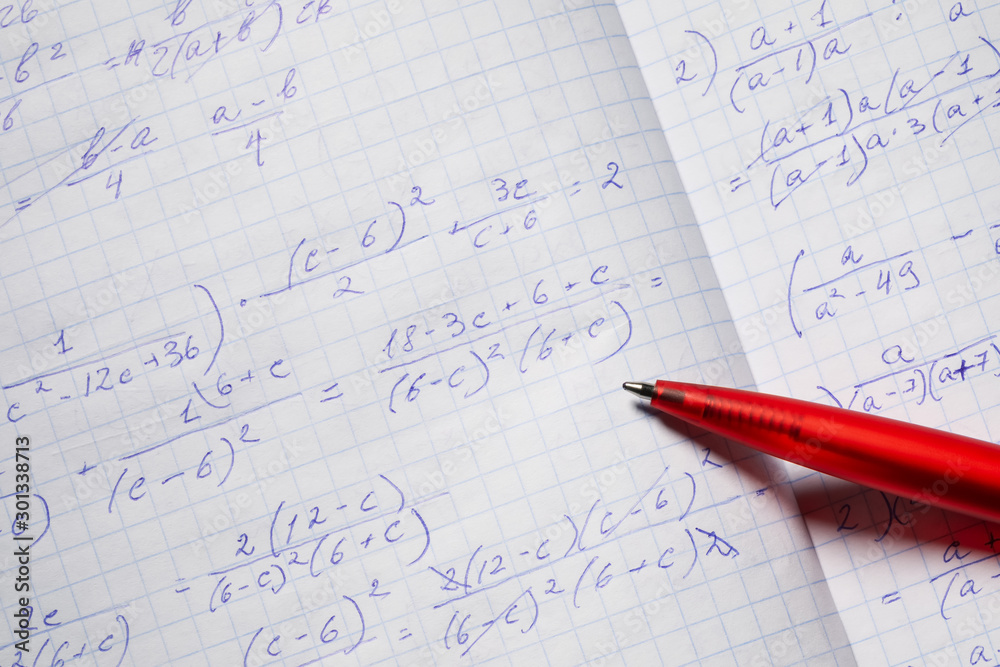 b² = 2(a+b)
= b-a/4 a-b/4
1/(c²-12c+36)) · (c-6)²/2 + 3c/(c+6) = 2
+ 1(6+c)/(c-6)² = (18-3c+6+c)/((6-c)²(6+c)) =
= 2(12-c)/((6-c)²(6+c))
(c-6)² = 2(12-c)(c-6)²/((6-c)²(6+c)2) =
2(6+c)
2) (a+1)/((a-1)a) : a
= (a+1)a(a-1)/((a-1)a·3(a+
(a/(a²-49) -
a/((a-7)(a+7))
2)
= a+/(a-
a-
Adobe Stock | #301338713